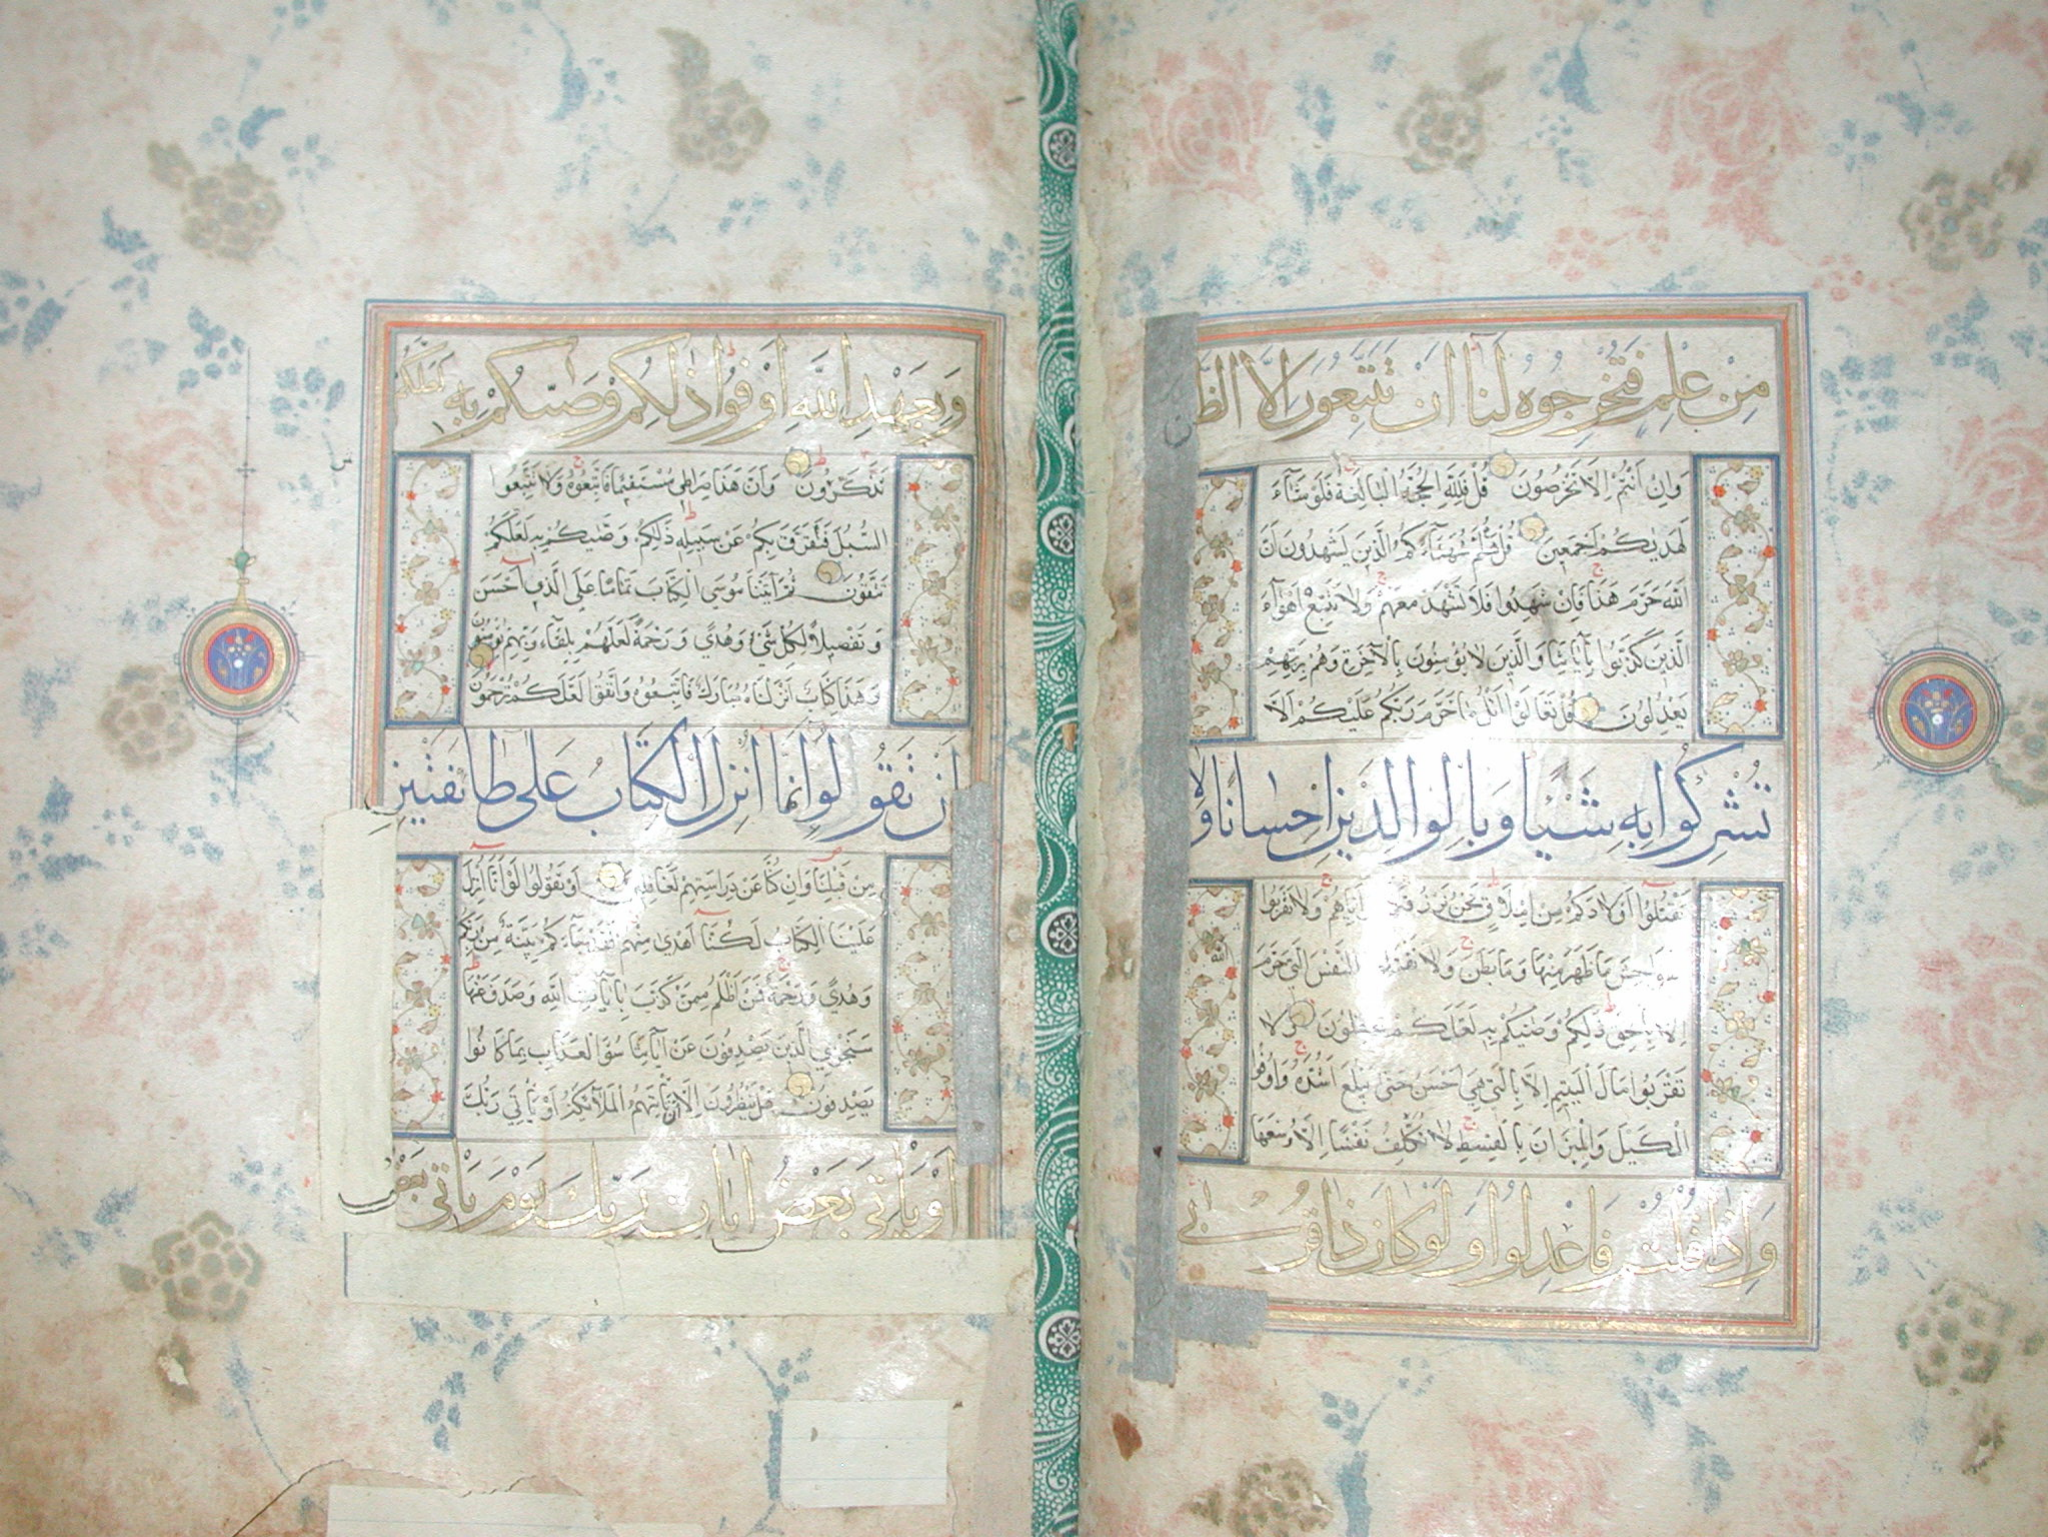 مِنْ عِلْمٍ فَتُخْرِجُوهُ لَنَا اِنْ تَتَّبِعُونَ اِلَّا الظَّنَّ
وَاِنْ اَنْتُمْ اِلَّا تَخْرُصُونَ قُلْ فَلِلّٰهِ الْحُجَّةُ الْبَالِغَةُ فَلَوْ شَآءَ
لَهَدٰيكُمْ اَجْمَعِينَ قُلْ هَلُمَّ شُهَدَآءَكُمُ الَّذِينَ يَشْهَدُونَ اَنَّ
اللّٰهَ حَرَّمَ هٰذَا فَاِنْ شَهِدُوا فَلَا تَشْهَدْ مَعَهُمْ وَلَا تَتَّبِعْ اَهْوَآءَ
الَّذِينَ كَذَّبُوا بِاٰيَاتِنَا وَالَّذِينَ لَا يُؤْمِنُونَ بِالْاٰخِرَةِ وَهُمْ بِرَبِّهِمْ
يَعْدِلُونَ قُلْ تَعَالَوْا اَتْلُ مَا حَرَّمَ رَبُّكُمْ عَلَيْكُمْ اَلَّا
تُشْرِكُوا بِهِ شَيْئًا وَبِالْوَالِدَيْنِ اِحْسَانًا وَلَا
تَقْتُلُوا اَوْلَادَكُمْ مِنْ اِمْلَاقٍ نَحْنُ نَرْزُقُكُمْ وَاِيَّاهُمْ وَلَا تَقْرَبُوا
الْفَوَاحِشَ مَا ظَهَرَ مِنْهَا وَمَا بَطَنَ وَلَا تَقْتُلُوا النَّفْسَ الَّتِي حَرَّمَ اللّٰهُ
اِلَّا بِالْحَقِّ ذٰلِكُمْ وَصّٰيكُمْ بِهِ لَعَلَّكُمْ تَعْقِلُونَ وَلَا
تَقْرَبُوا مَالَ الْيَتِيمِ اِلَّا بِالَّتِي هِيَ اَحْسَنُ حَتّٰى يَبْلُغَ اَشُدَّهُ وَاَوْفُوا
الْكَيْلَ وَالْمِيزَانَ بِالْقِسْطِ لَا نُكَلِّفُ نَفْسًا اِلَّا وُسْعَهَا
وَاِذَا قُلْتُمْ فَاعْدِلُوا وَلَوْ كَانَ ذَا قُرْبٰى
وَبِعَهْدِ اللّٰهِ اَوْفُوا ذٰلِكُمْ وَصّٰيكُمْ بِهِ لَعَلَّكُمْ
تَذَكَّرُونَ وَاَنَّ هٰذَا صِرَاطِي مُسْتَقِيمًا فَاتَّبِعُوهُ وَلَا تَتَّبِعُوا
السُّبُلَ فَتَفَرَّقَ بِكُمْ عَنْ سَبِيلِهِ ذٰلِكُمْ وَصّٰيكُمْ بِهِ لَعَلَّكُمْ
تَتَّقُونَ ثُمَّ اٰتَيْنَا مُوسَى الْكِتَابَ تَمَامًا عَلَى الَّذِي اَحْسَنَ
وَتَفْصِيلًا لِكُلِّ شَيْءٍ وَهُدًى وَرَحْمَةً لَعَلَّهُمْ بِلِقَآءِ رَبِّهِمْ يُؤْمِنُونَ
وَهٰذَا كِتَابٌ اَنْزَلْنَاهُ مُبَارَكٌ فَاتَّبِعُوهُ وَاتَّقُوا لَعَلَّكُمْ تُرْحَمُونَ
اَنْ تَقُولُوا اِنَّمَا اُنْزِلَ الْكِتَابُ عَلٰى طَائِفَتَيْنِ
مِنْ قَبْلِنَا وَاِنْ كُنَّا عَنْ دِرَاسَتِهِمْ لَغَافِلِينَ اَوْ تَقُولُوا لَوْ اَنَّا اُنْزِلَ
عَلَيْنَا الْكِتَابُ لَكُنَّا اَهْدٰى مِنْهُمْ فَقَدْ جَآءَكُمْ بَيِّنَةٌ مِنْ رَبِّكُمْ
وَهُدًى وَرَحْمَةٌ فَمَنْ اَظْلَمُ مِمَّنْ كَذَّبَ بِاٰيَاتِ اللّٰهِ وَصَدَفَ عَنْهَا
سَنَجْزِي الَّذِينَ يَصْدِفُونَ عَنْ اٰيَاتِنَا سُوءَ الْعَذَابِ بِمَا كَانُوا
يَصْدِفُونَ هَلْ يَنْظُرُونَ اِلَّا اَنْ تَاْتِيَهُمُ الْمَلٰٓئِكَةُ اَوْ يَاْتِيَ رَبُّكَ
اَوْ يَاْتِيَ بَعْضُ اٰيَاتِ رَبِّكَ يَوْمَ يَاْتِي بَعْضُ